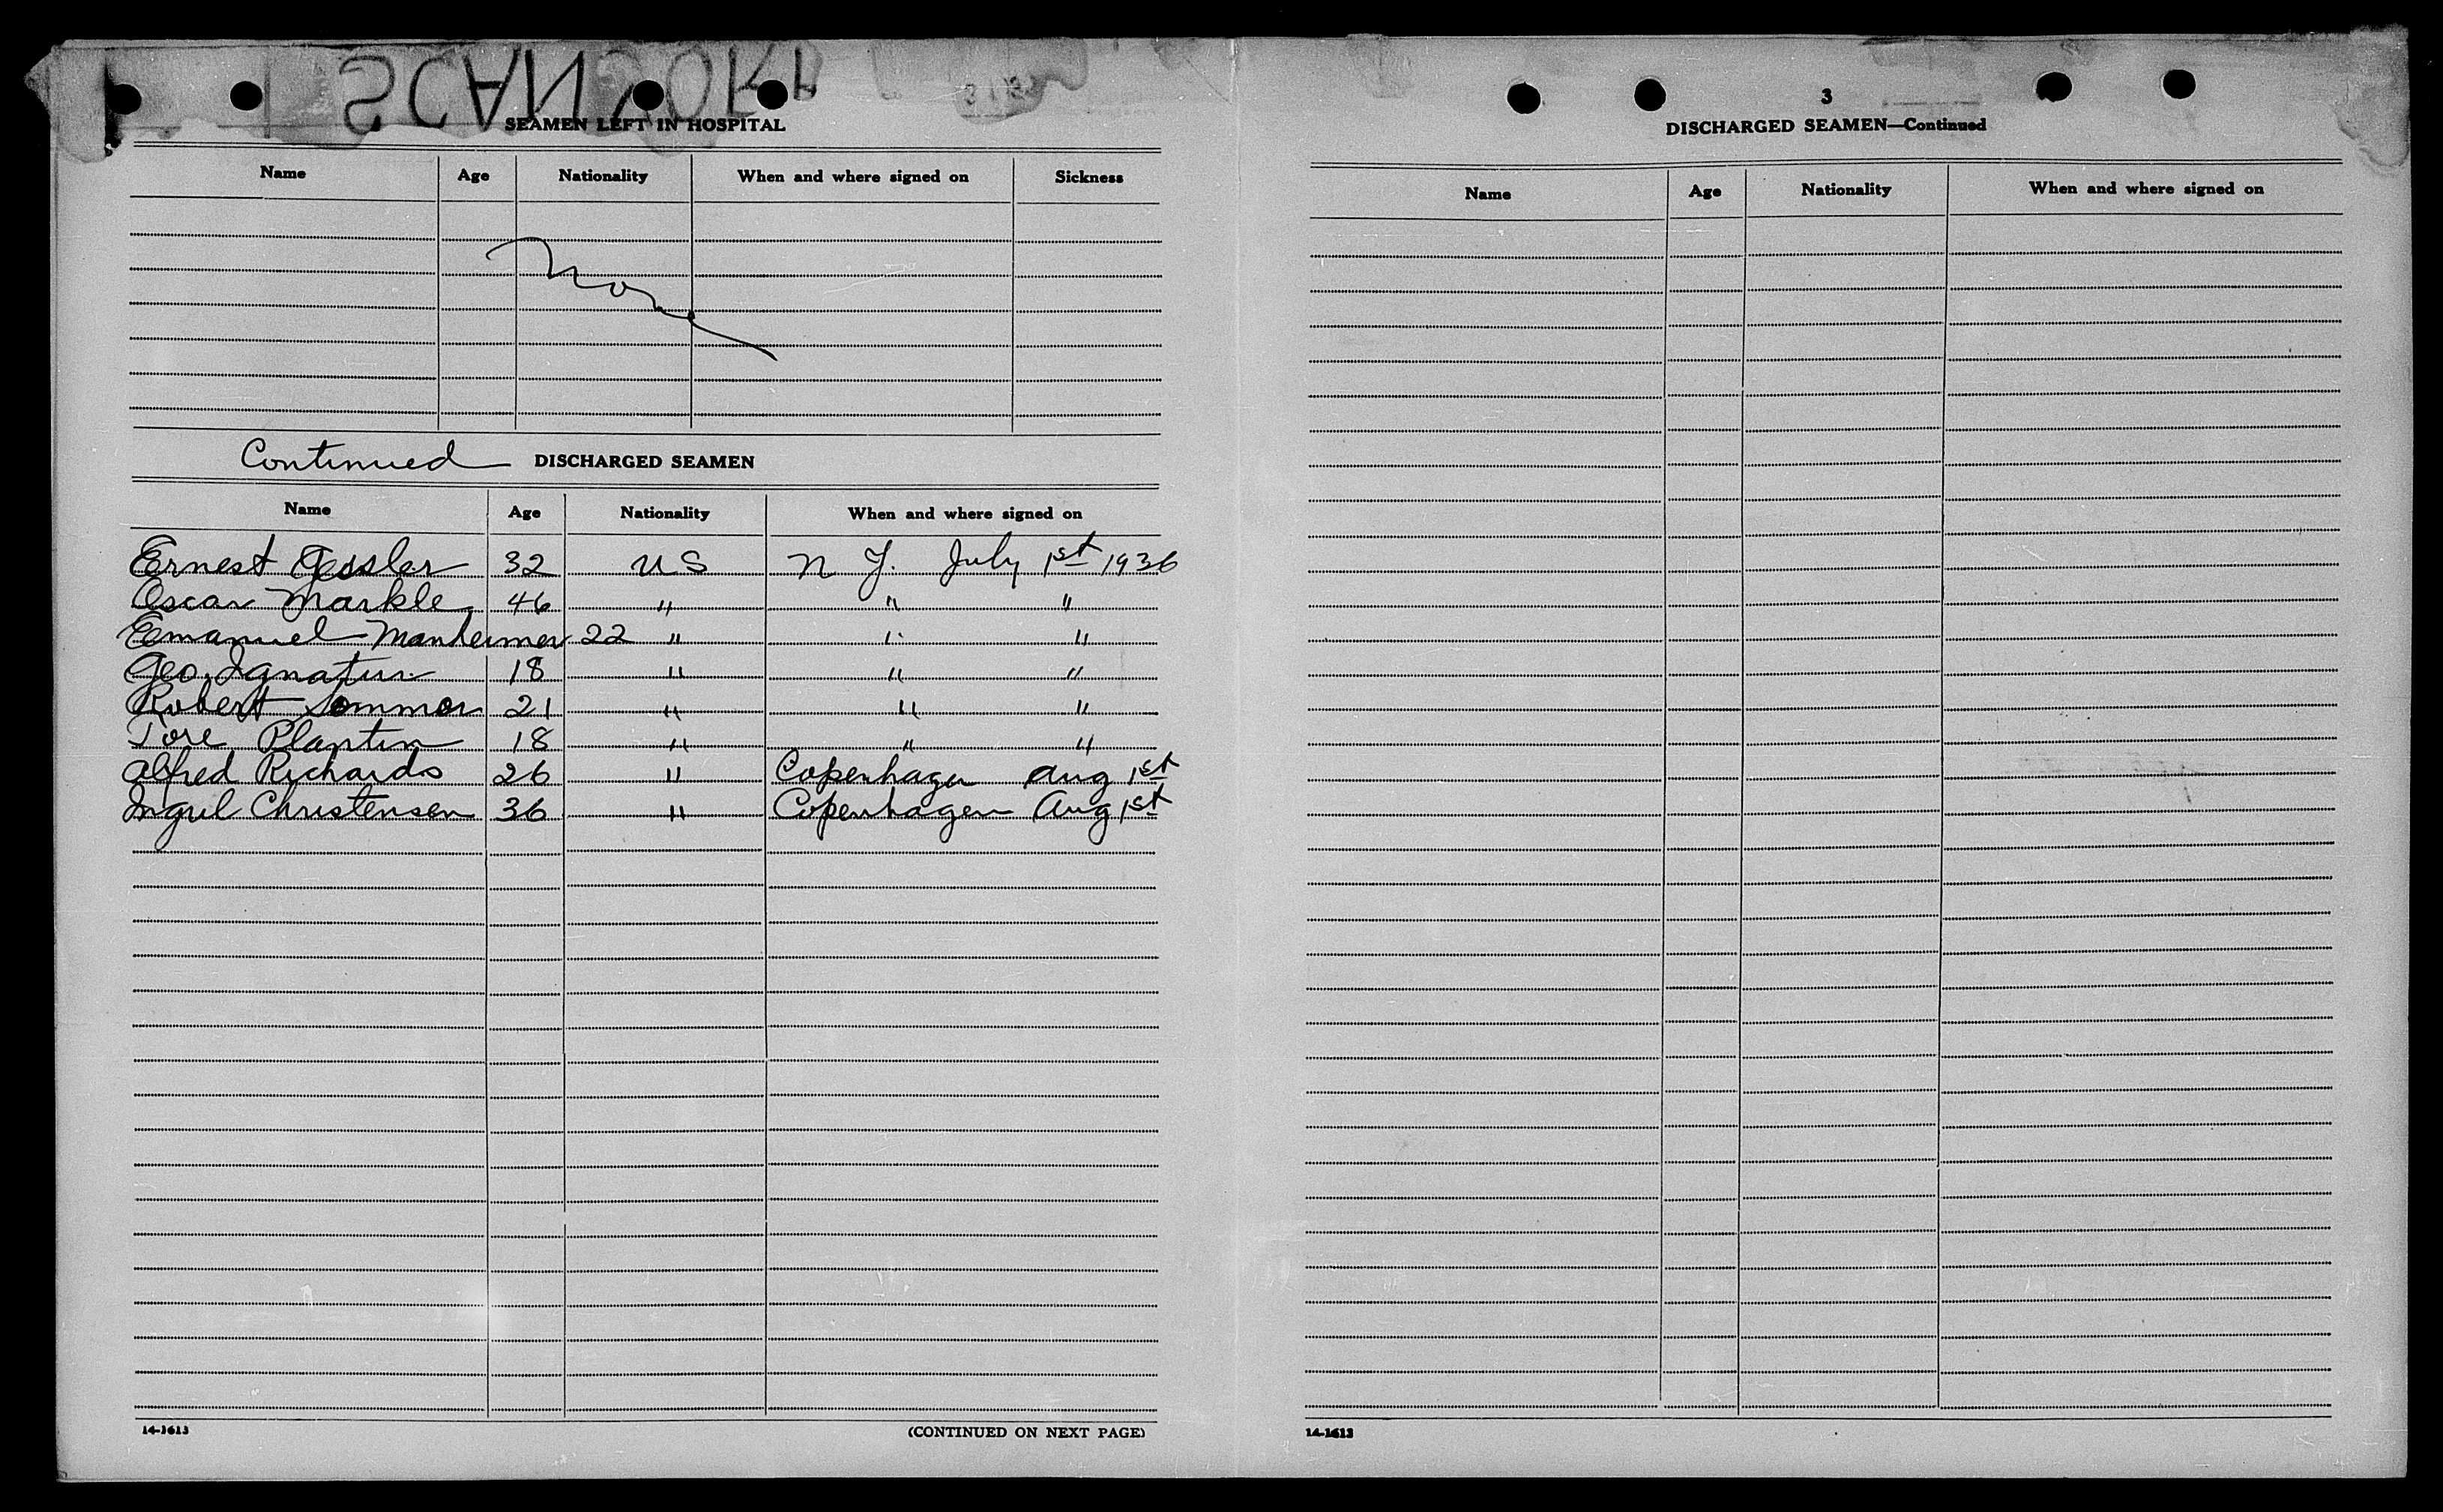 SCAN YORK
SEAMEN LEFT IN HOSPITAL
Name Age Nationality When and where signed on Sickness
None
Continued DISCHARGED SEAMEN
Name Age Nationality When and where signed on
Ernest Gessler 32 US N Y. July 1st 1936
Oscar Markle 46 " " "
Emanuel Manheimer 22 " " "
Geo. Ignatius 18 " " "
Robert Sommer 21 " " "
Tore Plantin 18 " " "
Alfred Richards 26 " Copenhagen Aug 1st
Ingul Christensen 36 " Copenhagen Aug 1st
14-1613 (CONTINUED ON NEXT PAGE)
3
DISCHARGED SEAMEN—Continued
Name Age Nationality When and where signed on
14-1613